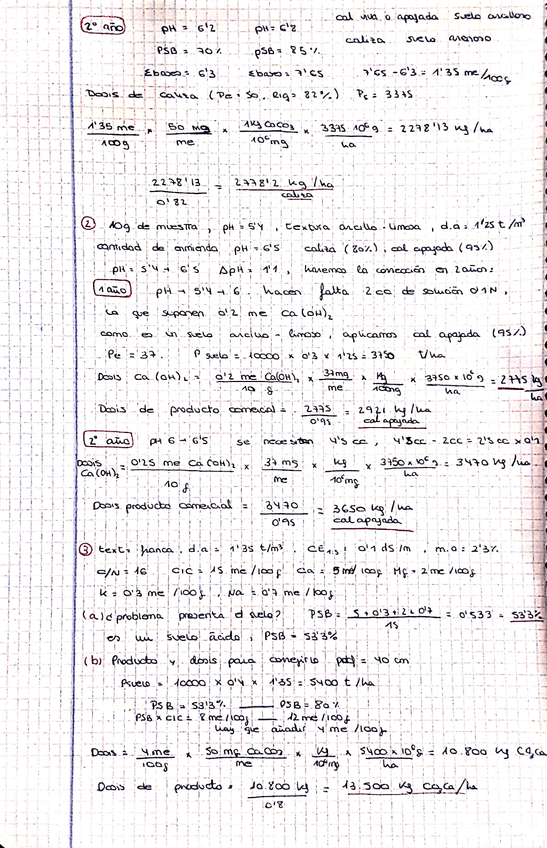 cal viva o apagada suelo arcilloso
2º año pH = 6'2 pH = 6'8
caliza suelo arenoso
PSB = 70% PSB = 85%
Σbases = 6'3 Σbases = 7'65 7'65 - 6'3 = 1'35 me/100g
Dosis de caliza (Pe = 50, Riq = 82%) Ps = 3375
1'35 me/100g × 50 mg/me × 1kg CaCO3/10⁶mg × 3375 10⁶ g/ha = 2278'13 kg/ha
2278'13/0'82 = 2778'2 kg/ha caliza
② 10g de muestra, pH = 5'4, textura arcillo-limosa, d.a = 1'25 t/m³
cantidad de enmienda pH = 6'5 caliza (80%), cal apagada (95%)
pH = 5'4 → 6'5 ΔpH = 1'1, haremos la corrección en 2 años:
1 año pH → 5'4 → 6. hacen falta 2 cc de solución 0'1 N,
lo que suponen 0'2 me Ca(OH)2
como es un suelo arcillo-limoso, aplicamos cal apagada (95%)
Pe = 37. P suelo = 10000 × 0'3 × 1'25 = 3750 t/ha
Dosis Ca(OH)2 = 0'2 me Ca(OH)2/10 g × 37mg/me × kg/10⁶mg × 3750 × 10⁶ g/ha = 2775 kg/ha
Dosis de producto comercial = 2775/0'95 = 2921 kg/ha cal apagada
2º año pH 6 - 6'5 se necesitan 4'5 cc, 4'5cc - 2cc = 2'5 cc × 0'1
Dosis Ca(OH)2 = 0'25 me Ca(OH)2/10 g × 37 mg/me × kg/10⁶mg × 3750 × 10⁶ g/ha = 3470 kg/ha
Dosis producto comercial = 3470/0'95 = 3650 kg/ha cal apagada
③ text: franca, d.a = 1'35 t/m³, CE1:5: 0'1 dS/m, m.o = 2'3%
C/N = 16 CIC = 15 me/100g Ca = 5 me/100g Mg = 2 me/100g
K = 0'3 me/100g, Na = 0'7 me/100g
(a) ¿problema presenta el suelo? PSB = 5 + 0'3 + 2 + 0'7/15 = 0'533 = 53'3%
es un suelo ácido, PSB = 53'3%
(b) Producto y dosis para corregirlo prof = 40 cm
Psuelo = 10000 × 0'4 × 1'35 = 5400 t/ha
PSB = 53'3% —— PSB = 80%
PSB × CIC = 8 me/100g — 12 me/100g
hay que añadir 4 me/100g
Dosis = 4 me/100g × 50 mg CaCO3/me × kg/10⁶mg × 5400 × 10⁶ g/ha = 10.800 kg CO3Ca
Dosis de producto = 10.800 kg/0'8 = 13.500 kg CO3Ca/ha